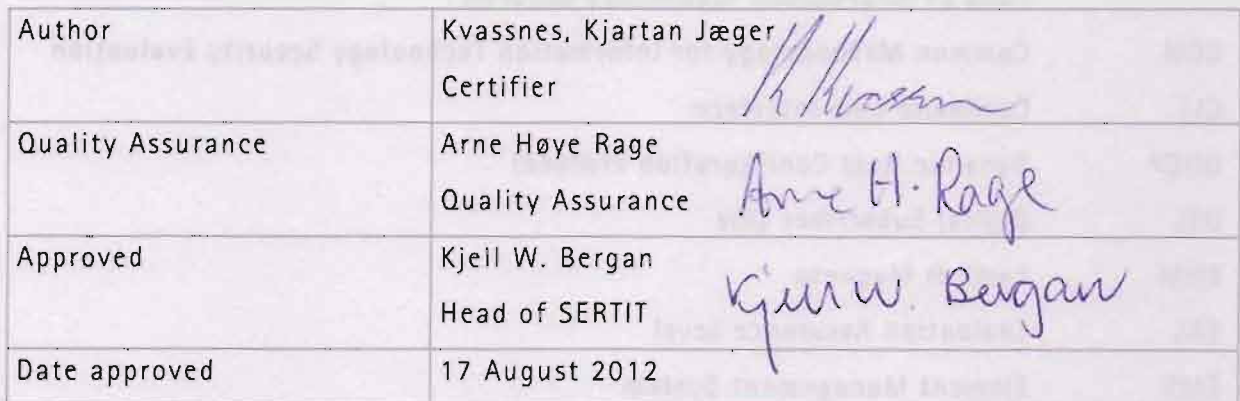 Author
Kvassnes, Kjartan Jæger
Certifier
K Kvassn
Quality Assurance
Arne Høye Rage
Quality Assurance
Arne H. Rage
Approved
Kjell W. Bergan
Head of SERTIT
Kjell W. Bergan
Date approved
17 August 2012